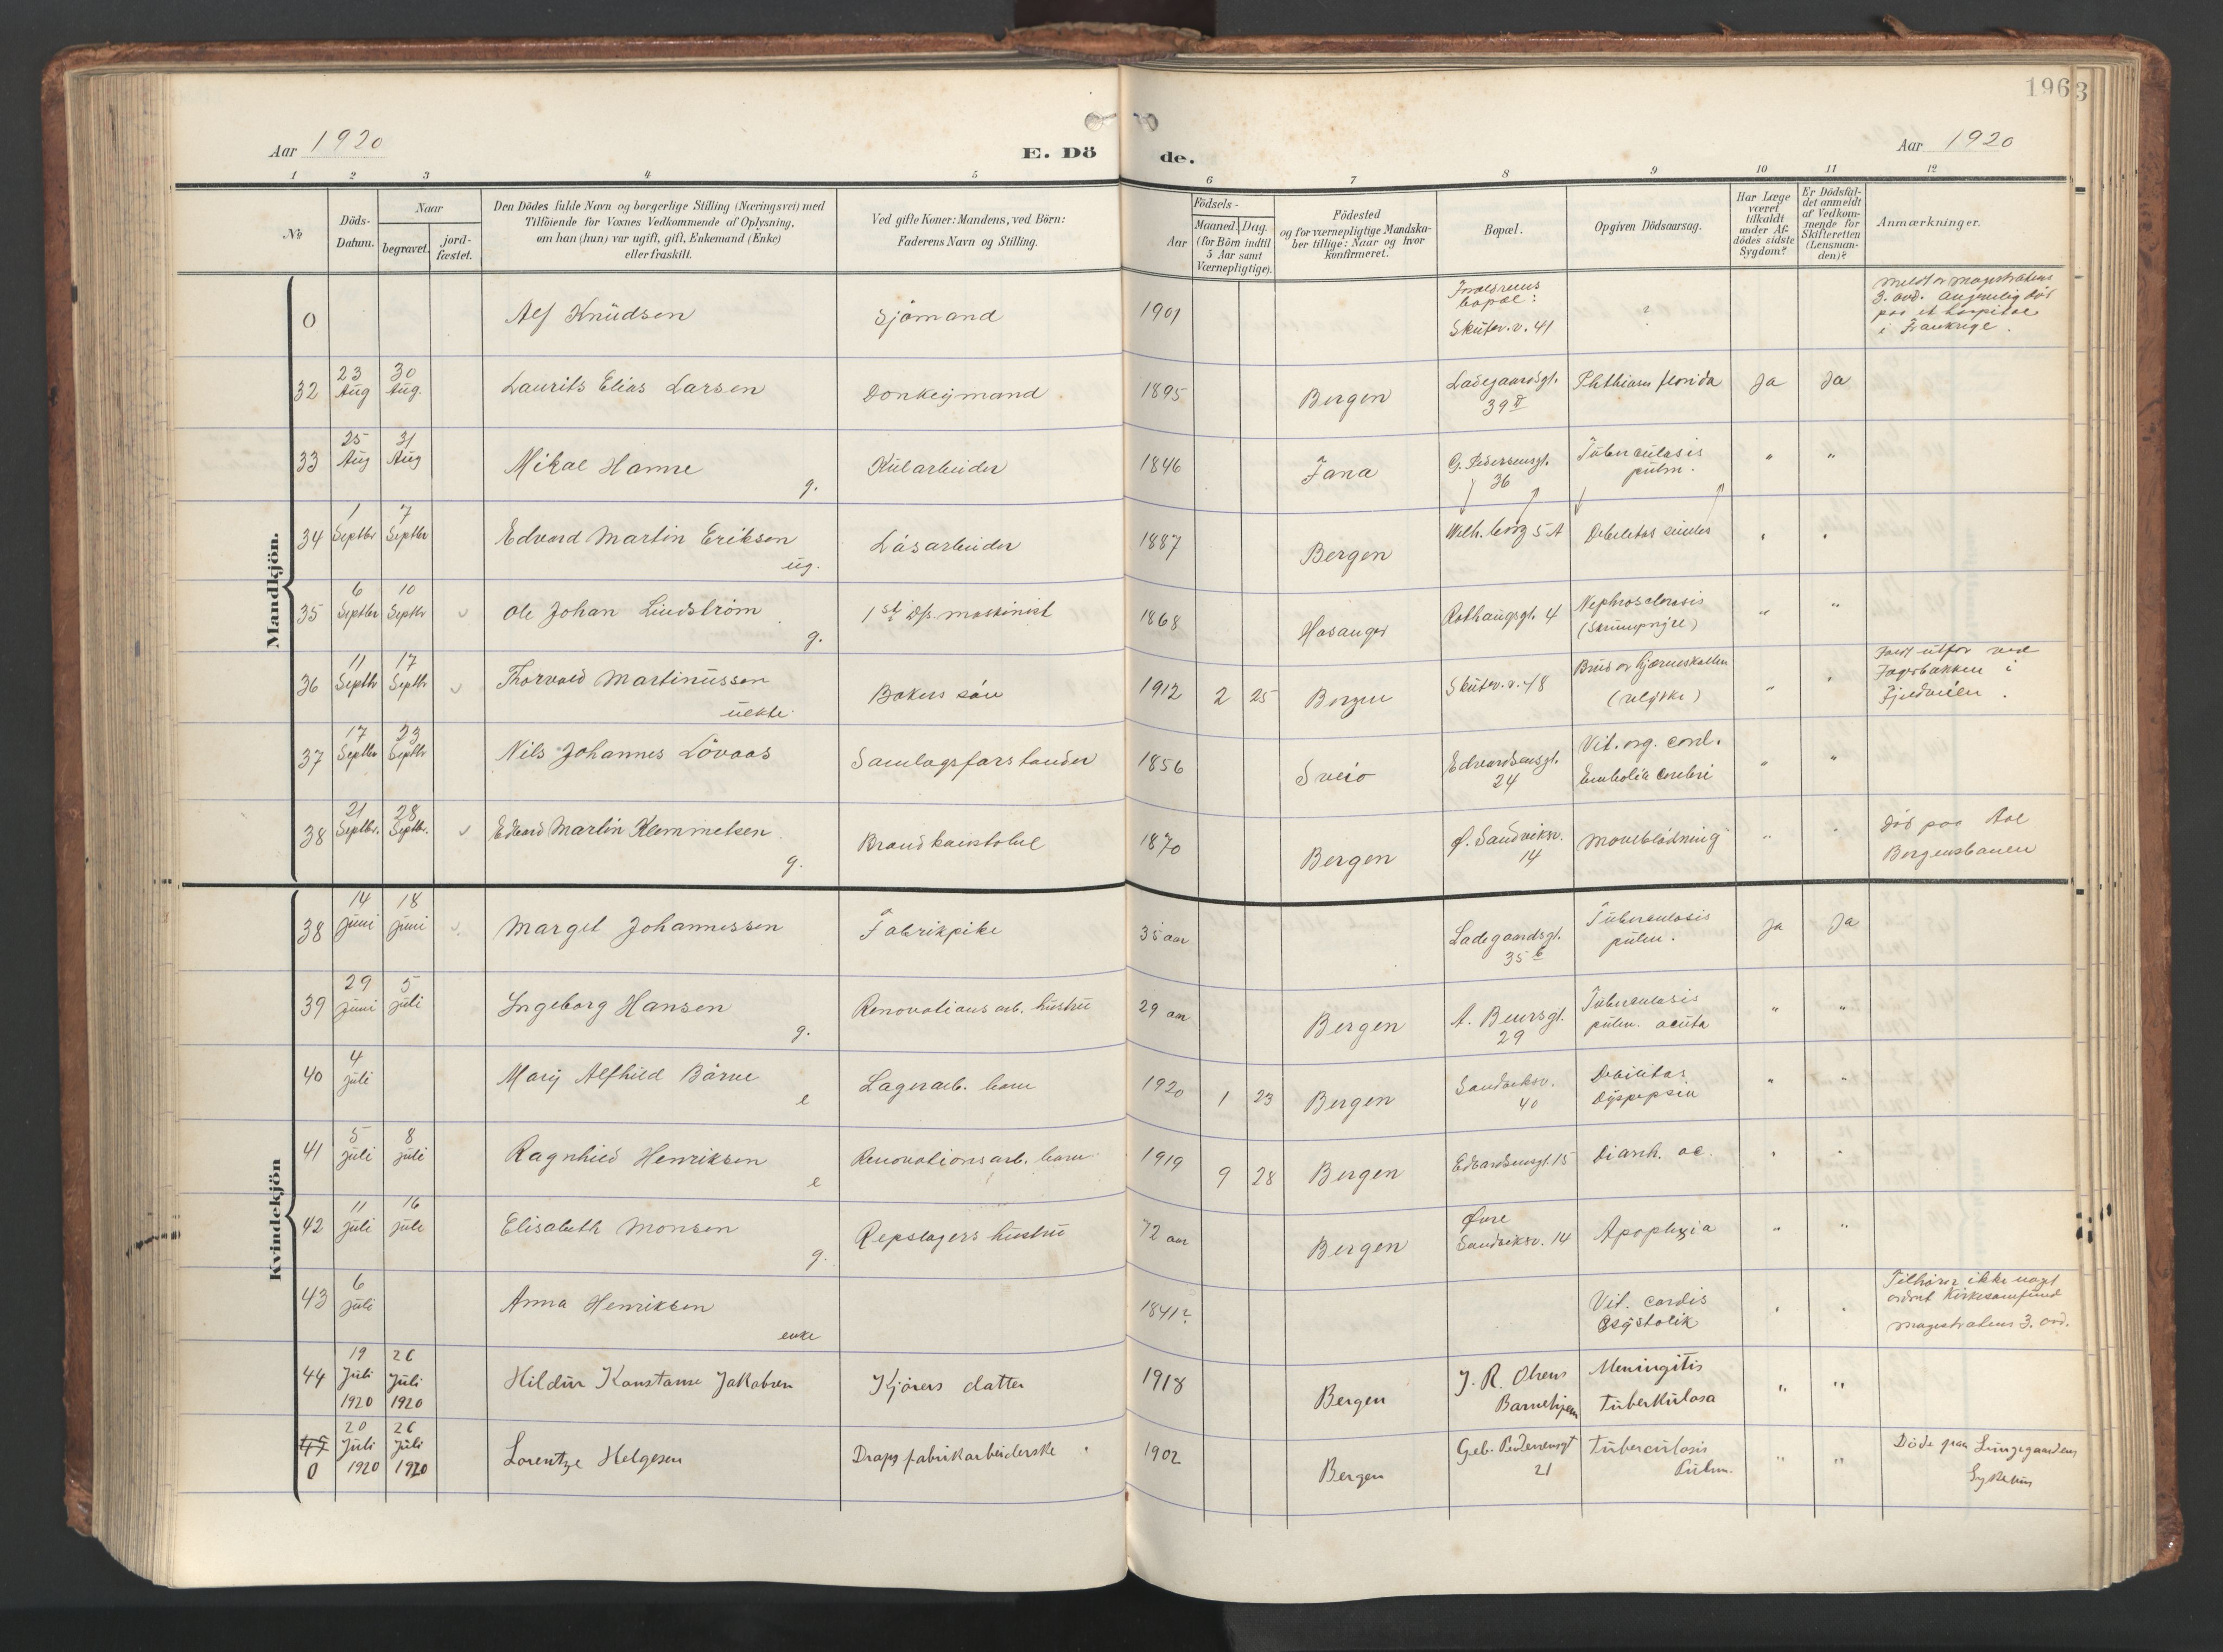 196
3
Aar 1920
E. Dö
de.
Aar 1920
1 2 3 4 5 6 7 8 9 10 11 12
No
Döds-
Datum.
Naar
begravet.
jord-
fæstet.
Den Dödes fulde Navn og borgerlige Stilling (Næringsvei) med
Tilföiende for Voxnes Vedkommende af Oplysning,
om han (hun) var ugift, gift, Enkemand (Enke)
eller fraskilt.
Ved gifte Koner: Mandens, ved Börn:
Faderens Navn og Stilling.
Födsels-
Aar
Maaned.
Dag.
(for Börn indtil
5 Aar samt
Værnepligtige).
Födested
og for værnepligtige Mandska-
ber tillige: Naar og hvor
konfirmeret.
Bopæl.
Opgiven Dödsaarsag.
Har Læge
været
tilkaldt
under Af-
dödes sidste
Sygdom?
Er Dödsfal-
det anmeldt
af Vedkom-
mende for
Skifteretten
(Lensman-
den)?
Anmærkninger.
Mandkjön.
0 Alf Knudsen Sjömand 1901
bopæl:
Skutev.v. 41
?
3. avd. angivelig död
paa et hospital
i Frankrige.
32 23 Aug 30 Aug. Laurits Elias Larsen Donkeymand 1895 Bergen Ladegaardsgt. 39 florida Ja Ja
33 25 Aug 31 Aug Mikal Hamre g. 1846 Fana G. Pedersensgt. 36 Tuberculosis pulm. " "
34 1 Septbr 7 Septbr Edvard Martin Eriksen ug. Låsarbeider 1887 Bergen 5 A Debilitas " "
35 6 Septbr 10 Septbr Ole Johan Lindström g. 1ste maskinist 1868 Hosanger Rothaugsgt. 4 Nephrosclerosis " "
36 11 Septbr 17 Septbr Thorvald Martinussen uekte Bakers sön 1912 2 25 Bergen Skutev.v. 48 Brud av hjerneskallen (ulykke) " "
utfor ved
i
Fjeldveien.
37 17 Septbr 23 Septbr Nils Johannes Lövaas Samlagsforstander 1856 Sveio Edvardsensgt. 24 Vit. org. cord. Embolia cerebri " "
38 21 Septbr. 28 Septbr. Edvard Martin Klemmetsen g. Brandkonstabel 1870 Bergen Ø. Sandviksv. 14 Maveblödning " "
Död paa Aal
Bergensbanen
Kvindekjön
38 14 juni 18 juni Marget Johannessen Fabrikpike 35 aar Ladegaardsgt. 35 b Tuberculosis pulm. Ja Ja
39 29 juni 5 juli Ingeborg Hansen g. Renovations arb. hustru 29 aar Bergen A. Beursgt. 29 Tuberculosis pulm. acuta " "
40 4 juli Mary Alfhild Börve e Lagerarb. barn 1920 1 23 Bergen Sandviksv. 40 Debilitas Dyspepsia " "
41 5 juli 8 juli Ragnhild Henriksen e Renovationsarb. barn 1919 9 28 Bergen Edvardsensgt. 15 Diarrh. ac. " "
42 11 juli 16 juli Elisabeth Monsen g. Repslagers hustru 72 aar Bergen Øvre Sandviksv. 14 Apoplexia " "
43 6 juli Anna Henriksen enke 1841? Vit. cordis " "
Tilhörer ikke noget
ordnet kirkesamfund
Magistratens 3. avd.
44 19 Juli 1920 26 Juli 1920 Hildur Konstanse Jakobsen Kjörers datter 1918 Bergen J. R. Olsens Barnehjem Meningitis tuberkulosa " "
45 0 20 Juli 1920 26 Juli 1920 Lorentze Helgesen Drops fabrikarbeiderske 1902 Bergen Geb. Pedersensgt 21 Tuberculosis Pulm. " "
Döde paa Lungegaardens
Sykehus